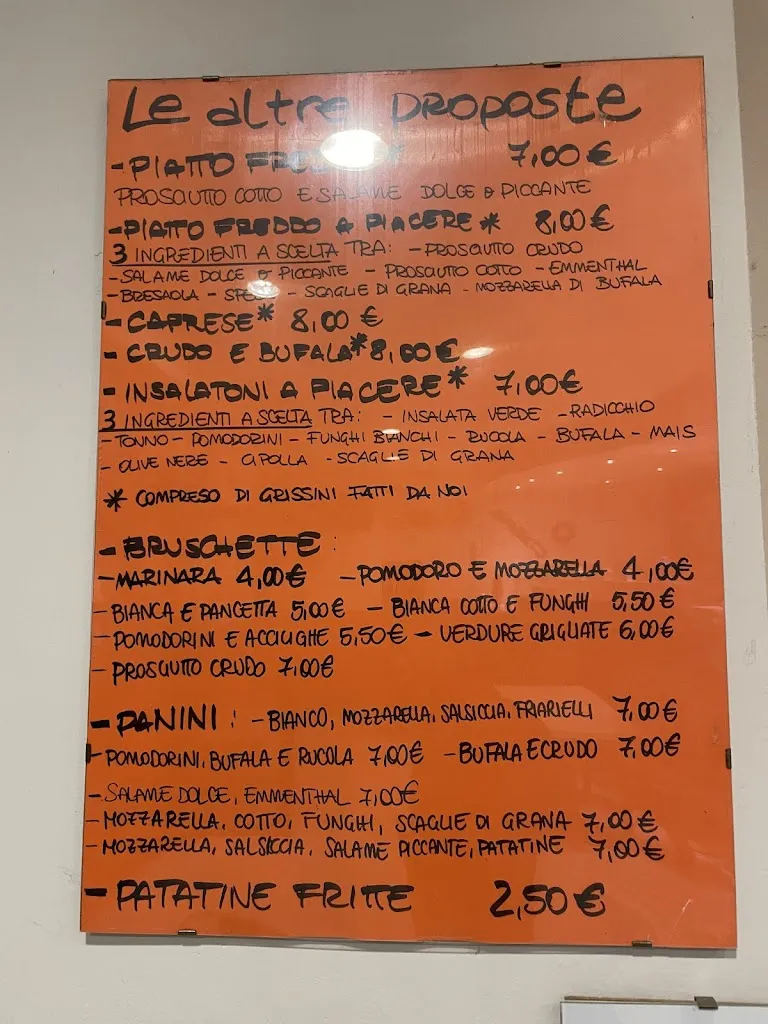 Le altre proposte
- PIATTO FREDDO * 7,00 €
PROSCIUTTO COTTO E SALAME DOLCE & PICCANTE
- PIATTO FREDDO A PIACERE * 8,00 €
3 INGREDIENTI A SCELTA TRA: - PROSCIUTTO CRUDO
- SALAME DOLCE & PICCANTE - PROSCIUTTO COTTO - EMMENTHAL
- BRESAOLA - - SCAGLIE DI GRANA - MOZZARELLA DI BUFALA
- CAPRESE * 8,00 €
- CRUDO E BUFALA * 8,00 €
- INSALATONI A PIACERE * 7,00 €
3 INGREDIENTI A SCELTA TRA: - INSALATA VERDE - RADICCHIO
- TONNO - POMODORINI - FUNGHI BIANCHI - RUCOLA - BUFALA - MAIS
- OLIVE NERE - CIPOLLA - SCAGLIE DI GRANA
* COMPRESO DI GRISSINI FATTI DA NOI
- BRUSCHETTE :
- MARINARA 4,00 € - POMODORO E MOZZARELLA 4,00 €
- BIANCA E PANCETTA 5,00 € - BIANCA COTTO E FUNGHI 5,50 €
- POMODORINI E ACCIUGHE 5,50 € - VERDURE GRIGLIATE 6,00 €
- PROSCIUTTO CRUDO 7,00 €
- PANINI : - BIANCO, MOZZARELLA, SALSICCIA, FRIARIELLI 7,00 €
- POMODORINI, BUFALA E RUCOLA 7,00 € - BUFALA E CRUDO 7,00 €
- SALAME DOLCE, EMMENTHAL 7,00 €
- MOZZARELLA, COTTO, FUNGHI, SCAGLIE DI GRANA 7,00 €
- MOZZARELLA, SALSICCIA, SALAME PICCANTE, PATATINE 7,00 €
- PATATINE FRITTE 2,50 €